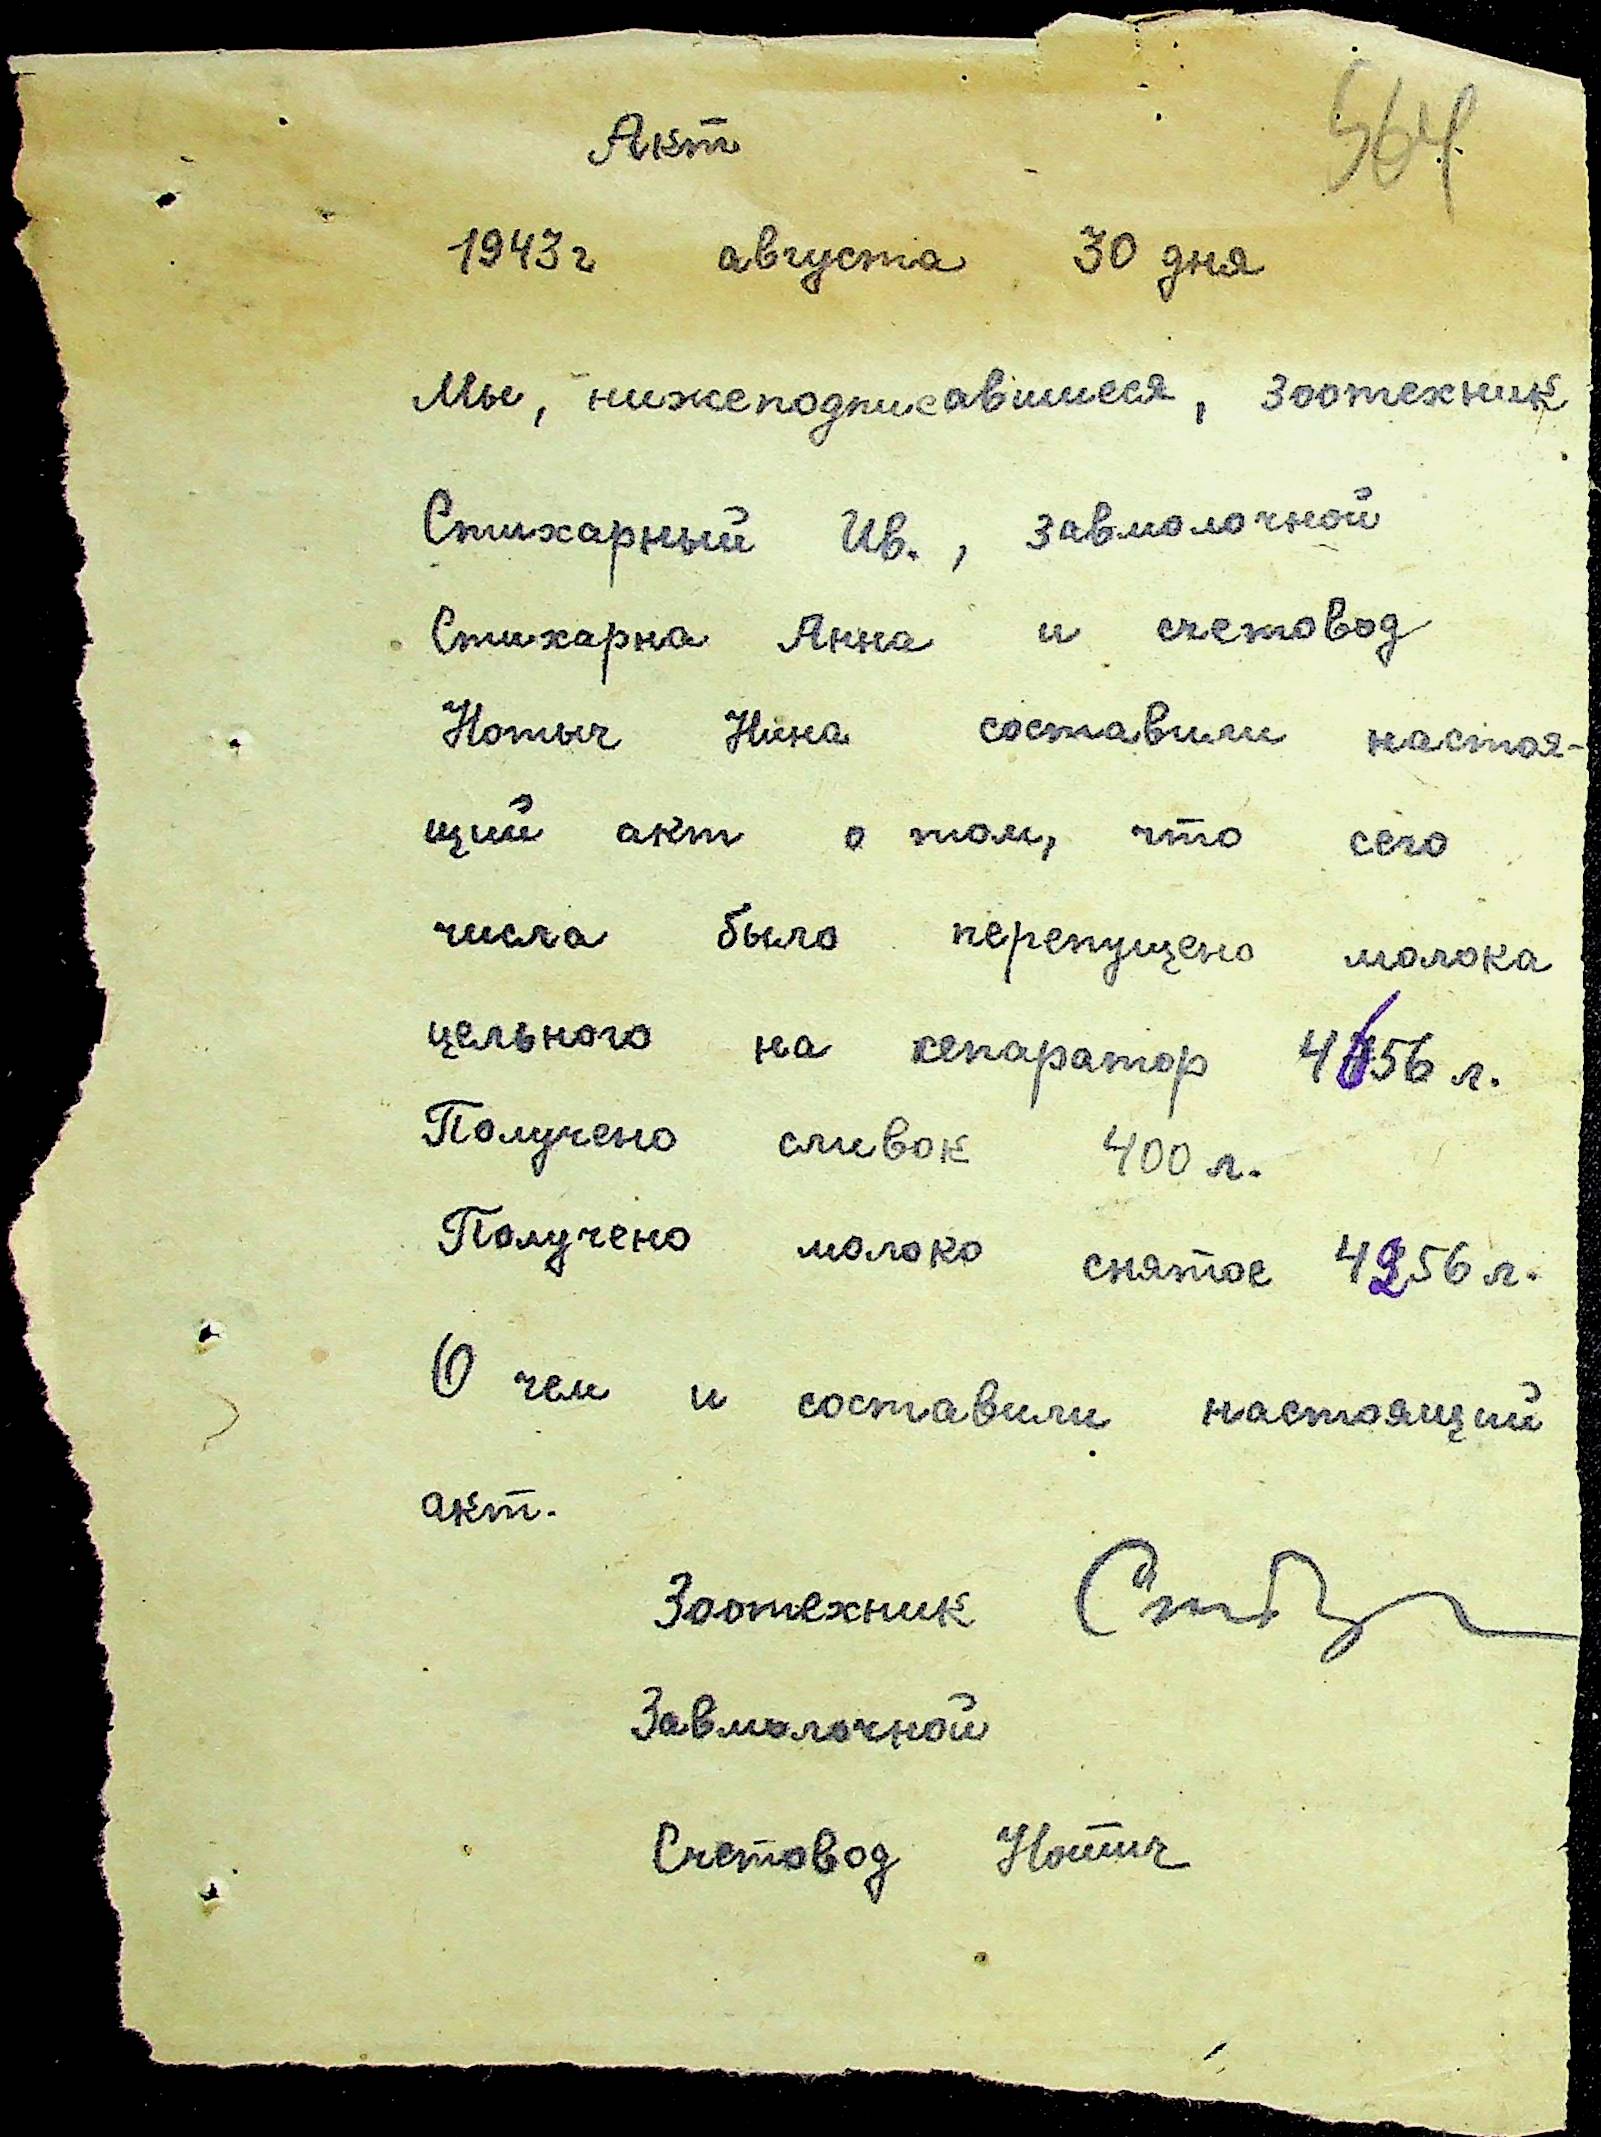 564
Акт
1943г августа 30 дня
Мы, нижеподписавшиеся, зоотехник
Стихарный Ив., завмолочной
Стихарна Анна и счетовод
Нотыч Нина составили настоя-
щий акт о том, что сего
числа было перепущено молока
цельного на сепаратор 4656 л.
Получено сливок 400 л.
Получено молоко снятое 4256 л.
О чем и составили настоящий
акт.
Зоотехник
Завмолочной
Счетовод Нотич